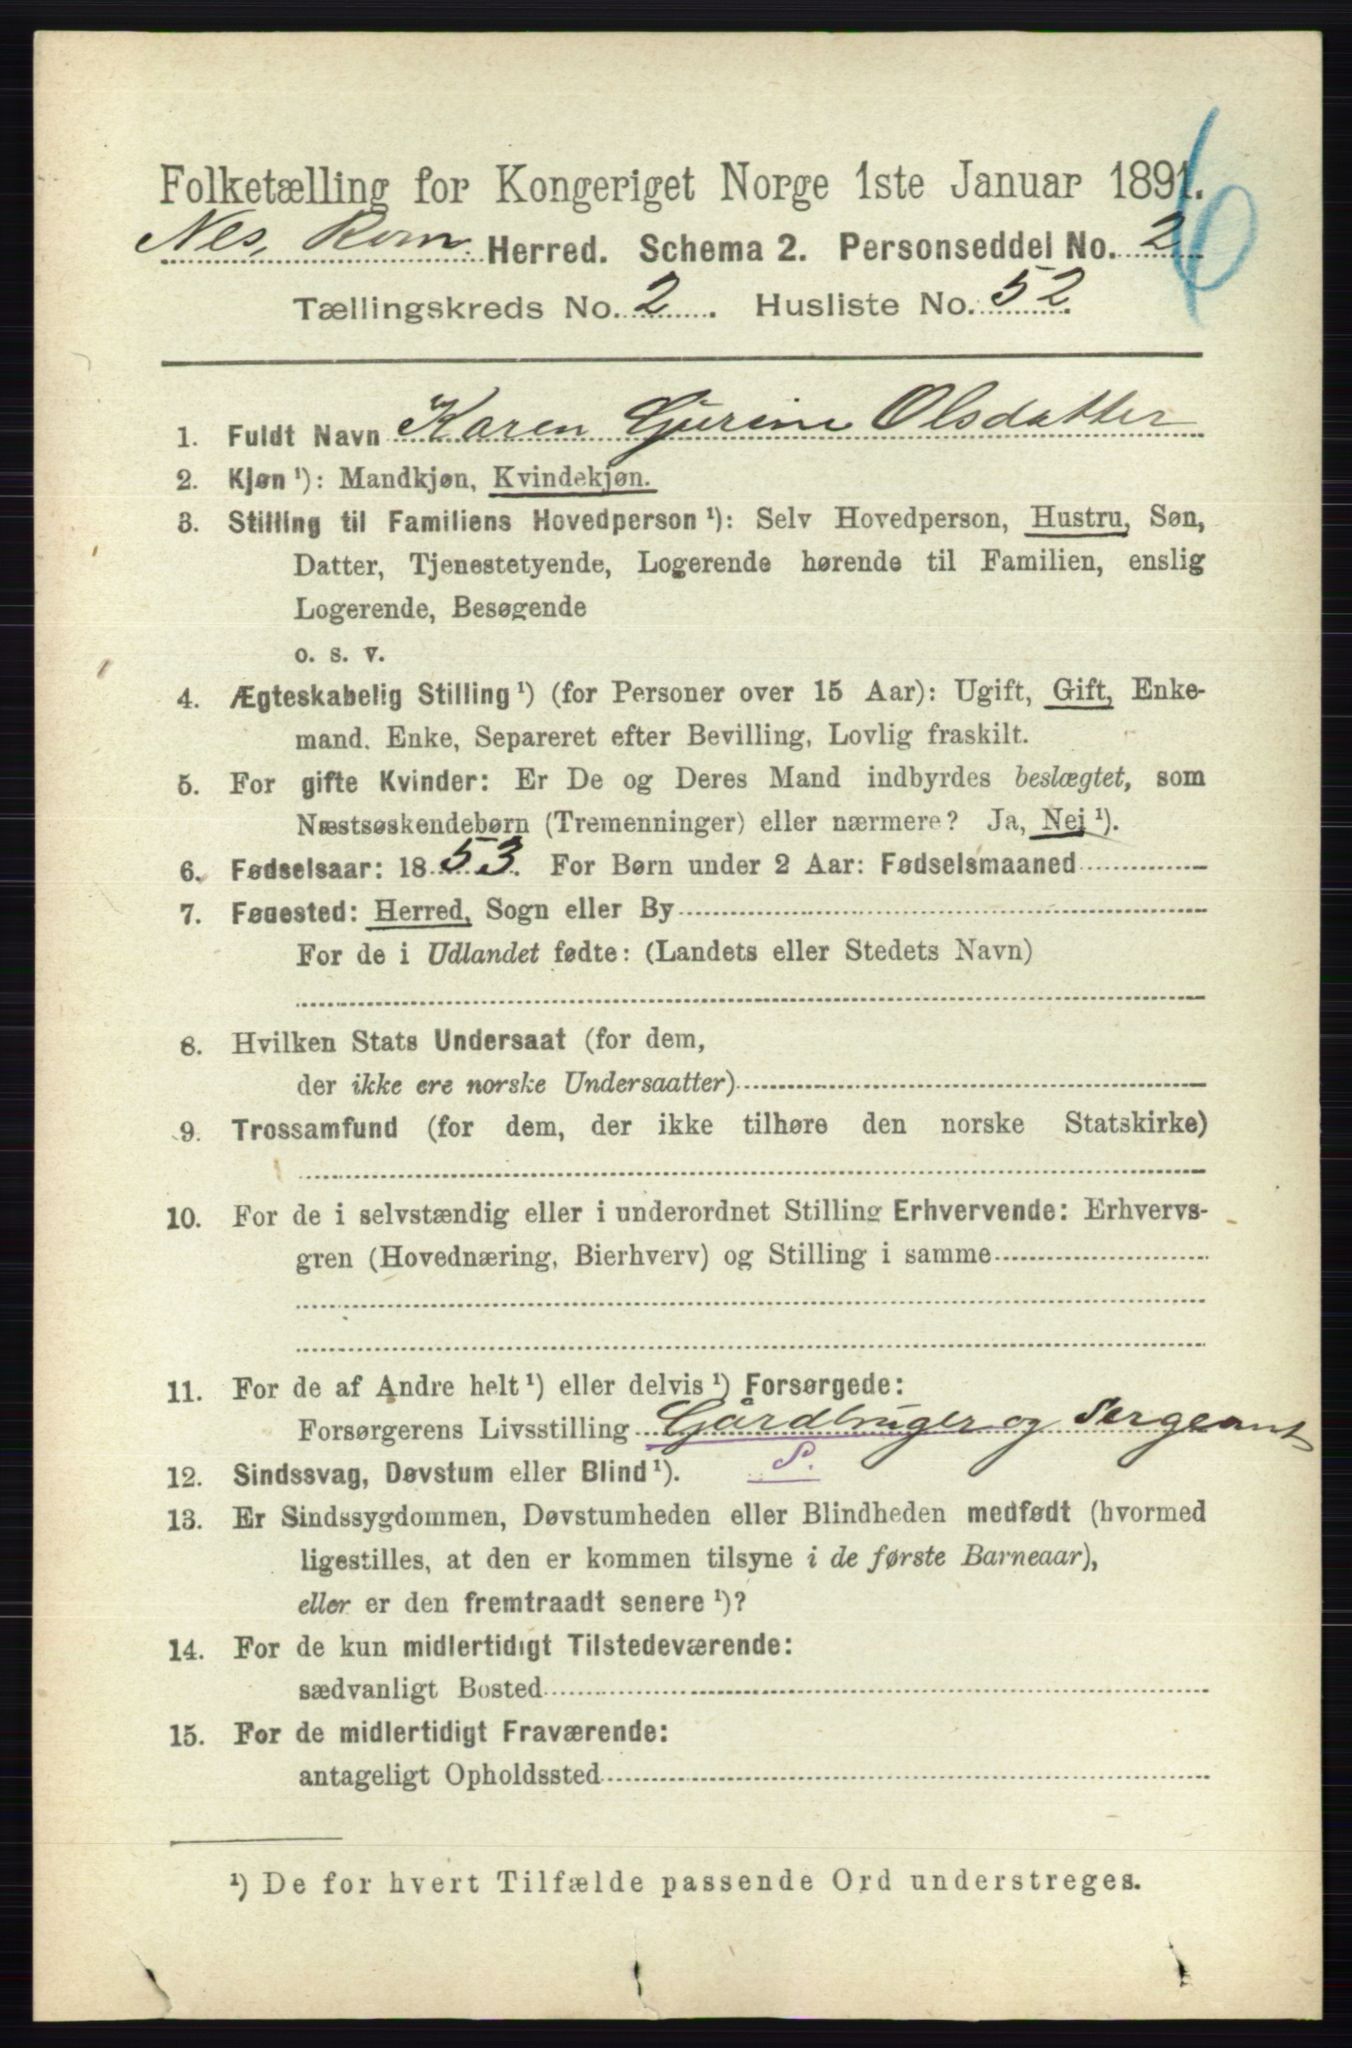 Folketælling for Kongeriget Norge 1ste Januar 1891.
6
Nes, Rom. Herred. Schema 2. Personseddel No. 2
Tællingskreds No. 2. Husliste No. 52.
1. Fuldt Navn Karen Gurine Olsdatter
2. Kjøn ¹): Mandkjøn, Kvindekjøn.
3. Stilling til Familiens Hovedperson ¹): Selv Hovedperson, Hustru, Søn,
Datter, Tjenestetyende, Logerende hørende til Familien, enslig
Logerende, Besøgende
o. s. v.
4. Ægteskabelig Stilling ¹) (for Personer over 15 Aar): Ugift, Gift, Enke-
mand. Enke, Separeret efter Bevilling, Lovlig fraskilt.
5. For gifte Kvinder: Er De og Deres Mand indbyrdes beslægtet, som
Næstsøskendebørn (Tremenninger) eller nærmere? Ja, Nej ¹).
6. Fødselsaar: 1853. For Børn under 2 Aar: Fødselsmaaned
7. Føuested: Herred, Sogn eller By
For de i Udlandet fødte: (Landets eller Stedets Navn)
8. Hvilken Stats Undersaat (for dem,
der ikke ere norske Undersaatter)
9. Trossamfund (for dem, der ikke tilhøre den norske Statskirke)
10. For de i selvstændig eller i underordnet Stilling Erhvervende: Erhvervs-
gren (Hovednæring, Bierhverv) og Stilling i samme
11. For de af Andre helt ¹) eller delvis ¹) Forsørgede:
Forsørgerens Livsstilling Gårdbruger og Sergeant
S.
12. Sindssvag, Døvstum eller Blind ¹).
13. Er Sindssygdommen, Døvstumheden eller Blindheden medfødt (hvormed
ligestilles, at den er kommen tilsyne i de første Barneaar),
eller er den fremtraadt senere ¹)?
14. For de kun midlertidigt Tilstedeværende:
sædvanligt Bosted
15. For de midlertidigt Fraværende:
antageligt Opholdssted
¹) De for hvert Tilfælde passende Ord understreges.